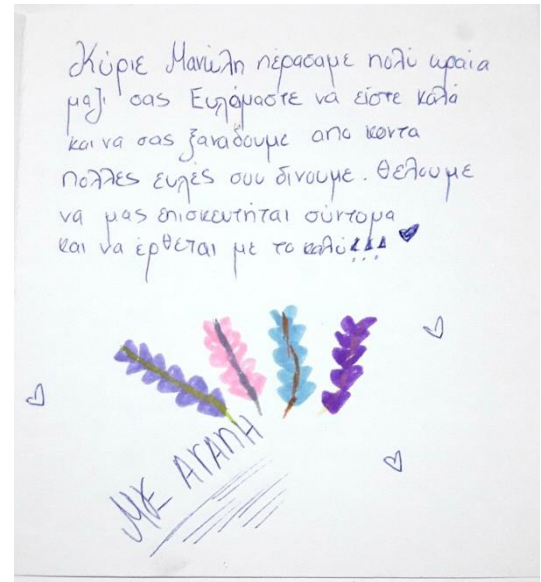 Κύριε Μανώλη περάσαμε πολύ ωραία
μαζί σας Ευχόμαστε να είστε καλά
και να σας ξαναδουμε απο κοντα
πολλες ευχές σου δινουμε. Θελουμε
να μας επισκευτήται σύντομα
και να έρθεται με το καλό!!!
ΜΕ ΑΓΑΠΗ